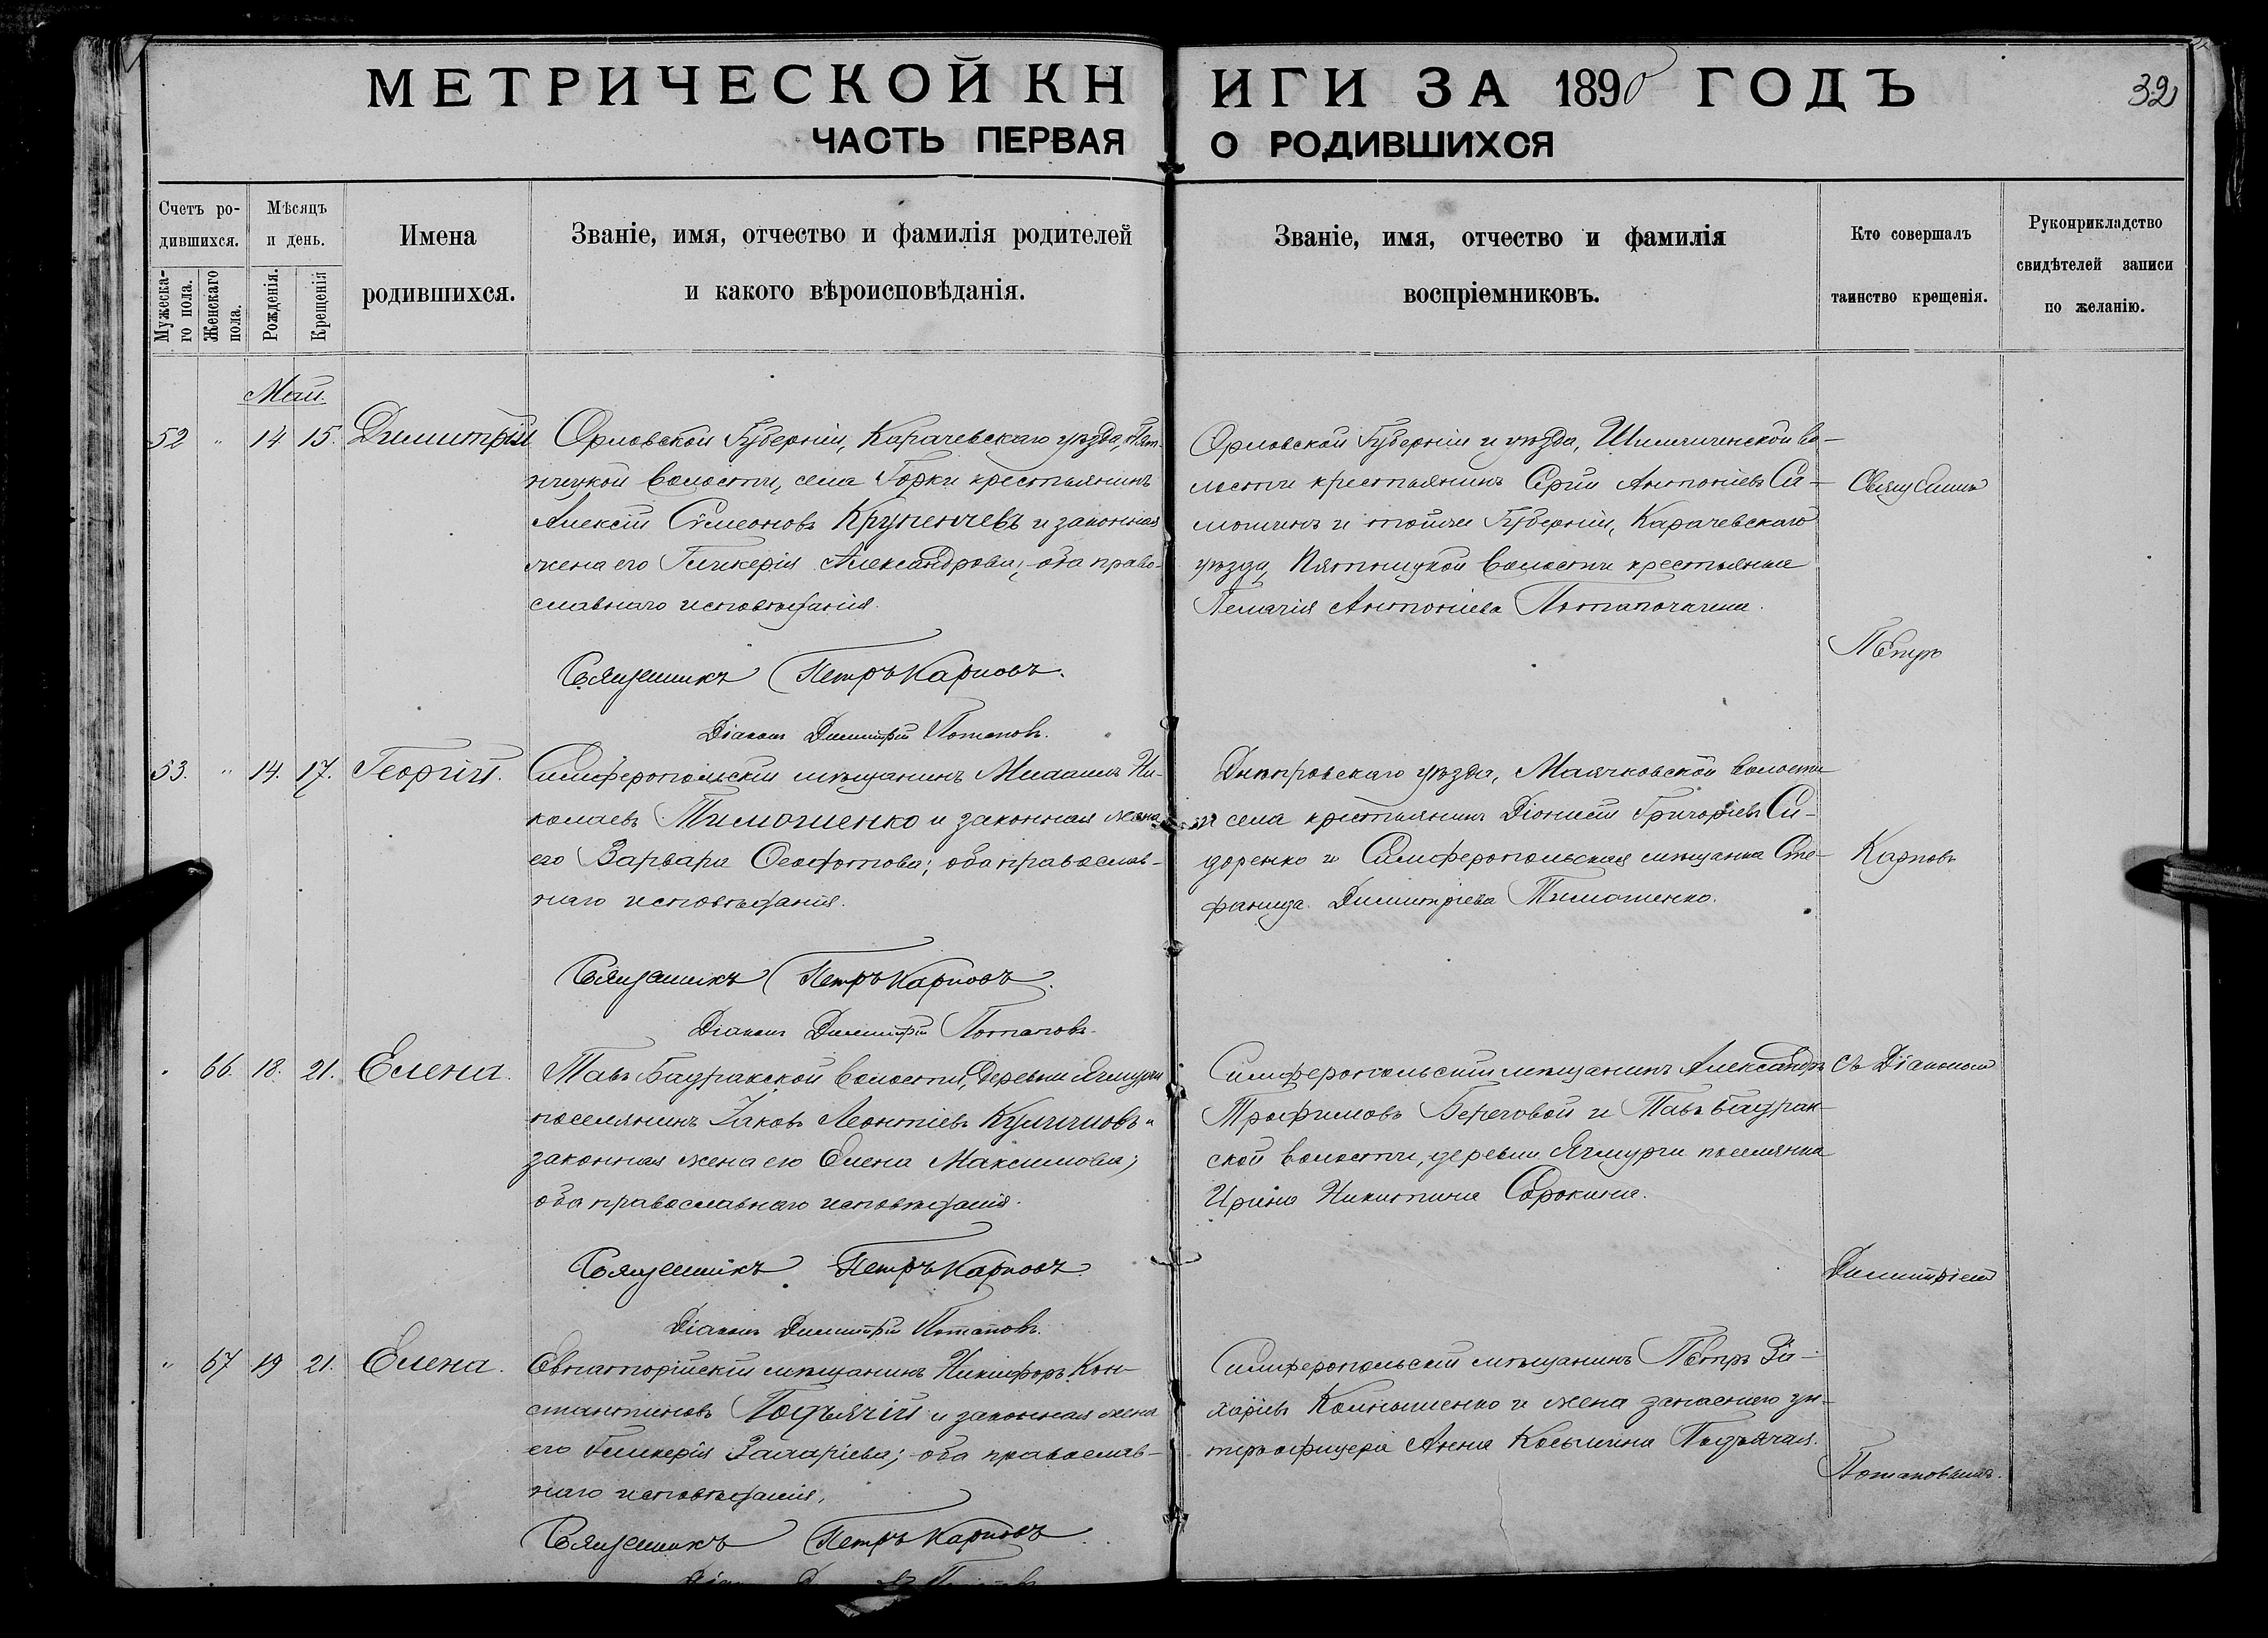 МЕТРИЧЕСКОЙ КНИГИ ЗА 1890 ГОДЪ
32
ЧАСТЬ ПЕРВАЯ О РОДИВШИХСЯ
Счетъ ро-
дившихся.
Мужеска-
го пола.
Женскаго
пола.
Мѣсяцъ
и день.
Рожденія.
Крещенія
Имена
родившихся.
Званіе, имя, отчество и фамилія родителей
и какого вѣроисповѣданія.
Званіе, имя, отчество и фамилія
воспріемниковъ.
Кто совершалъ
таинство крещенія.
Рукоприкладство
свидѣтелей записи
по желанію.
Май.
52 " 14 15. Димитрій
Орловской Губерніи, Карачевскаго уѣзда, Пят-
ницкой волости, села Горки крестьянинъ
Алексій Симеоновъ Крупенчевъ и законная
жена его Гликерія Александрова; оба право-
славнаго исповѣданія.
Священникъ Петръ Карповъ.
Діаконъ Димитрій Потаповъ.
Орловской Губерніи и уѣзда, во-
лости крестьянинъ Сергій Антоніевъ Си-
мошинъ и тойже Губерніи, Карачевскаго
уѣзда, Пятницкой волости крестьянка
Пелагія Антоніева Потапочкина.
Священникъ
Петръ
53. " 14. 17. Георгій.
Симферопольскій мѣщанинъ Михаилъ Ни-
колаевъ Тимошенко и законная жена
его Варвара Феофотова; оба православ-
наго исповѣданія.
Священникъ Петръ Карповъ.
Діаконъ Димитрій Потаповъ.
Днѣпровскаго уѣзда, Маячковской волости
и села крестьянинъ Діонисій Григоріевъ Си-
доренко и Симферопольская мѣщанка Сте-
фанида Димитріева Тимошенко.
Карповъ
" 66. 18. 21. Елена.
Тавъ Бадракской волости, деревни Ячмурчи
поселянинъ Іаковъ Леонтіевъ Куличновъ и
законная жена его Елена Максимова;
оба православнаго исповѣданія.
Священникъ Петръ Карповъ.
Діаконъ Димитрій Потаповъ.
Симферопольскій мѣщанинъ Александръ
Трофимовъ Береговой и Тавъ Бадрак-
ской волости, деревни Ячмурчи поселянка
Ирина Никитина Сорокина.
съ Діакономъ
Димитріемъ
" 67 19 21. Елена.
Евпаторійскій мѣщанинъ Никифоръ Кон-
стантиновъ Подъячій и законная жена
его Гликерія Захаріева; оба православ-
наго исповѣданія.
Священникъ Петръ Карповъ.
Симферопольскій мѣщанинъ Петръ За-
харіевъ и жена запаснаго ун-
теръ офицера Анна Косьмина Подъячая.
Потаповымъ.